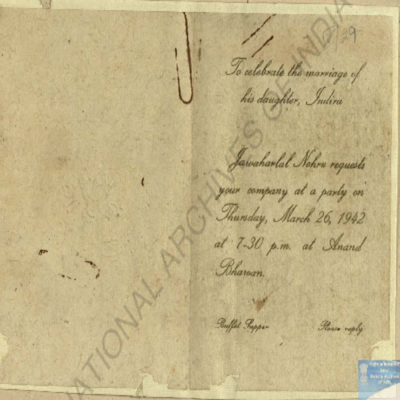 To celebrate the marriage of
his daughter, Indira
Jawaharlal Nehru requests
your company at a party on
Thursday, March 26, 1942
at 7-30 p.m. at Anand
Bhawan.
Buffet Supper Please reply
NATIONAL ARCHIVES OF INDIA